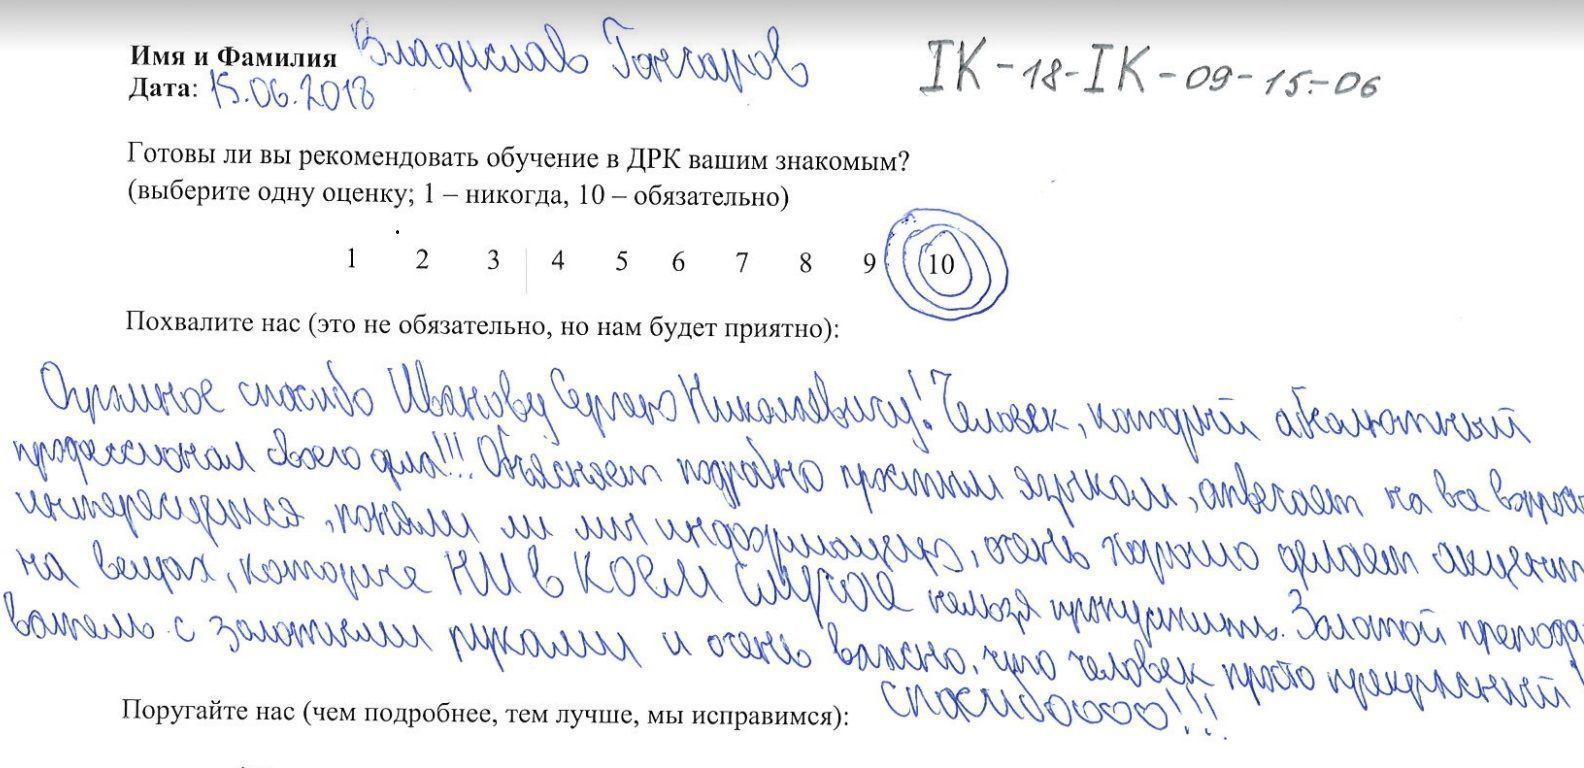 Имя и Фамилия Владислав Гончаров IK-18-IK-09-15.-06
Дата: 15.06.2018
Готовы ли вы рекомендовать обучение в ДРК вашим знакомым?
(выберите одну оценку; 1 – никогда, 10 – обязательно)
1 2 3 4 5 6 7 8 9 10
Похвалите нас (это не обязательно, но нам будет приятно):
Огромное спасибо Иванову Сергею Николаевичу! Человек, который абсолютный
профессионал своего дела!!! Объясняет подробно простым языком, отвечает на все вопросы
интересуется, поняли ли мы информацию, очень хорошо делает акцент
на вещах, которые НИ В КОЕМ СЛУЧАЕ нельзя пропустить. Золотой препода-
ватель с золотыми руками и очень важно, что человек просто прекрасный!
спасибоооо!!!
Поругайте нас (чем подробнее, тем лучше, мы исправимся):